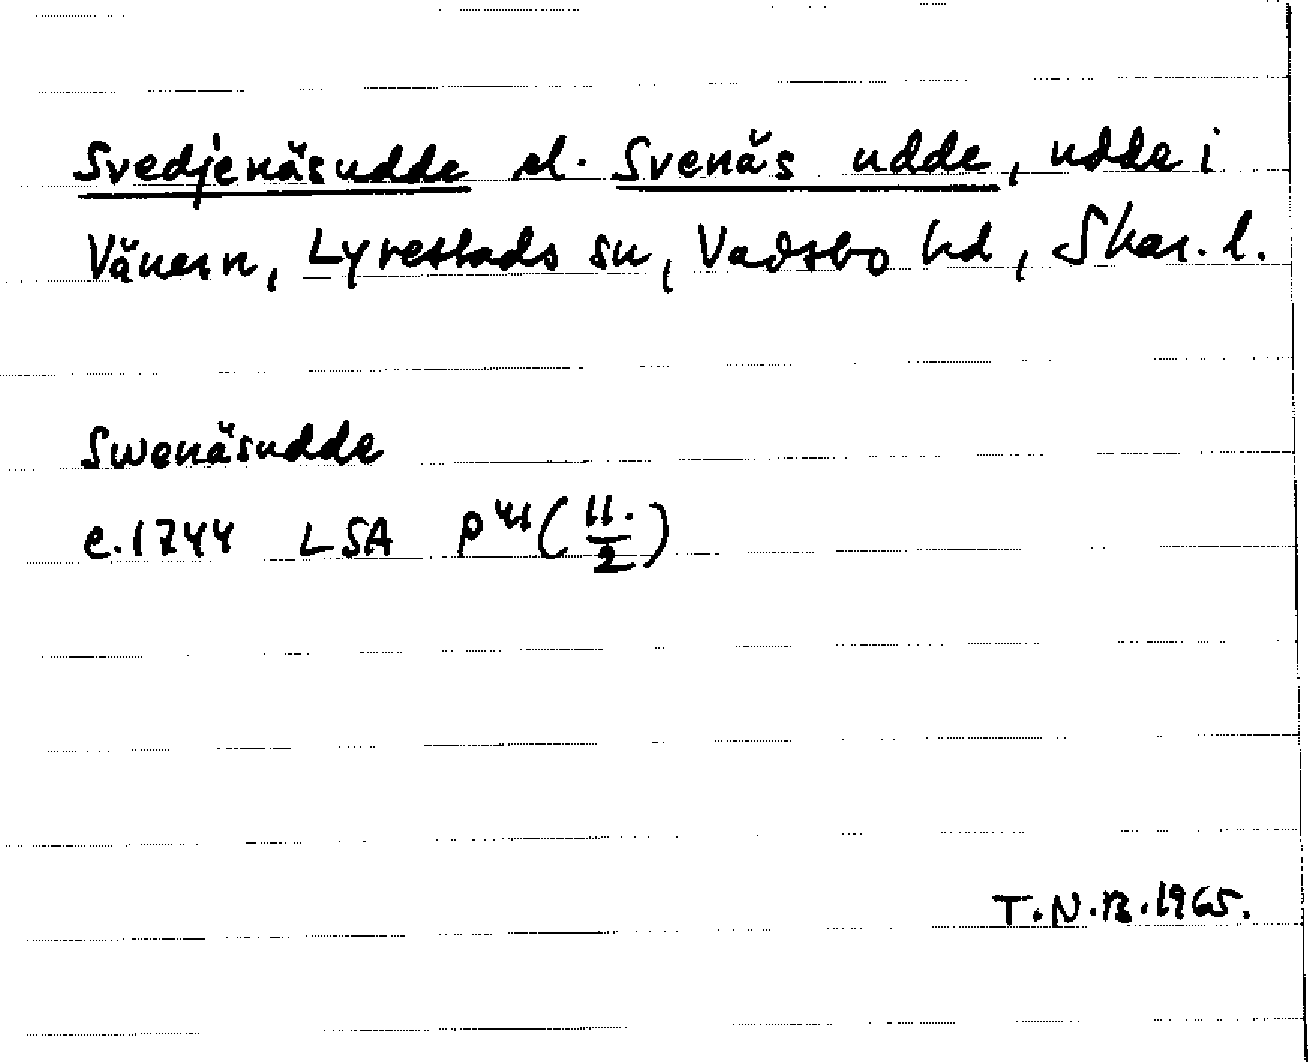 Svedjenäsudde el. Svenäs udde, udde i
Vänern, Lyrestads sn, Vadsbo hd, Skar. l.
Swenäsudde
c. 1744 LSA P 41 (11./2)
T.N.B. 1965.